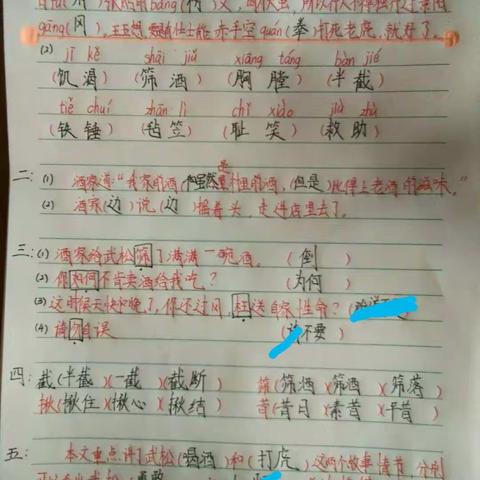 gāng(冈)。王五想,赤手空quán(拳)打死老虎,就好了。
(2) jī kě shāi jiǔ xiōng táng bàn jié
(饥渴) (筛酒) (胸膛) (半截)
tiě chuí zhān lì chǐ xiào jiù zhù
(铁锤) (毡笠) (耻笑) (救助)
二:(1) 酒家道:“我家的酒(虽然)是村里的酒,(但是)比得上老酒的滋味。”
(2) 酒家(边)说(边)摇着头,走进店里去了。
三:(1) 酒家给武松筛了满满一碗酒。 (倒)
(2) 你如何不肯卖酒给我吃? (为何)
(3) 这时候天快晚了,你还过冈,枉送自家性命? (
(4) 请勿自误 (不要)
四:截(半截)(一截)(截断) 筛(筛酒)(筛酒)(筛落)
揪(揪住)(揪心)(揪结) 昔(昔日)(素昔)(平昔)
五: 本文重点讲了武松(喝酒)和(打虎)这两个故事情节,分别